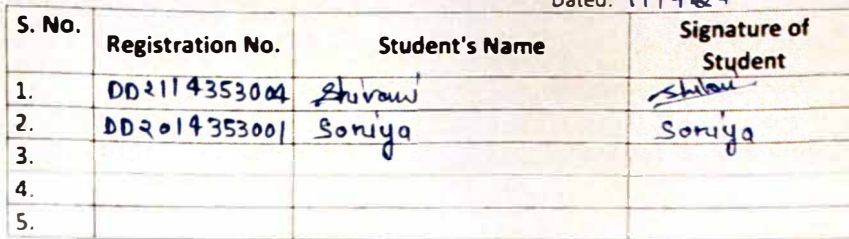 Dated:
S. No. Registration No. Student's Name Signature of Student
1. DD2114353004 Shivani
2. DD2014353001 Soniya Soniya
3.
4.
5.